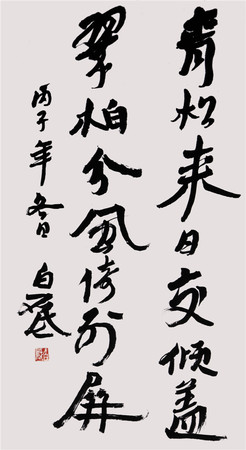 青松夹日交倾盖
翠柏分风倚列屏
丙子年冬日
白砥